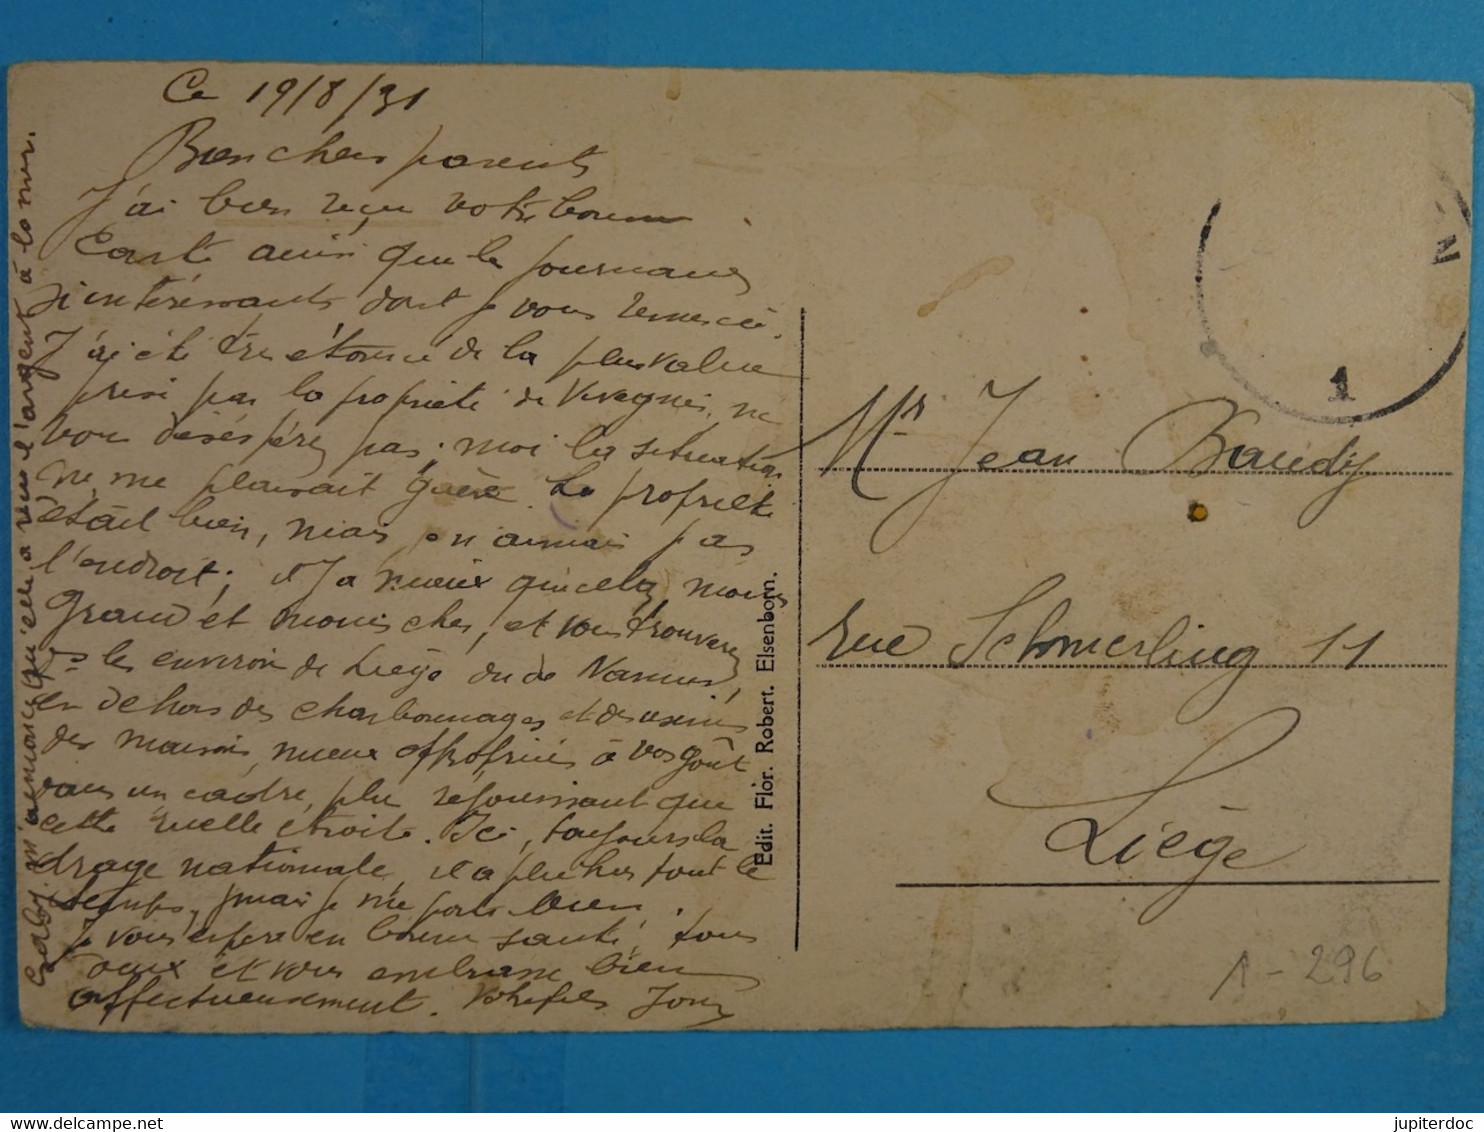 Ce 19/8/31
Bien chers parents
J'ai bien reçu votre bonne
Carte ainsi que le journaux
si intéressants dont je vous remercie.
J'ai été très étonné de la plus value
prise par la propriété de Vivegnis, ne
vous désespérez pas; moi la situation
ne me plaisait guère La propriété
était bien, mais on n'aimais pas
l'endroit; il y a mieux que cela, moins
grand et moins cher, et vous trouverez
ds les environ de Liège ou de Namur,
en dehors des charbonnages et des usines
des maisons, mieux appropriés à vos goût
dans un cadre, plu réjouissant que
cette ruelle étroite. Ici, toujours la
drage nationale, il a plu hes tout le
temps, mais je me porte bien.
Je vous espère en bonne santé, tous
deux et vous embrasse bien
affectueusement. Votre fils
Gaby m'annonce qu'elle a reçu l'argent à la mer.
Edit. Flor. Robert. Elsenborn.
N
1
Mr Jean Baudy
rue Schmerling 11
Liège
1-296
jupiterdoc